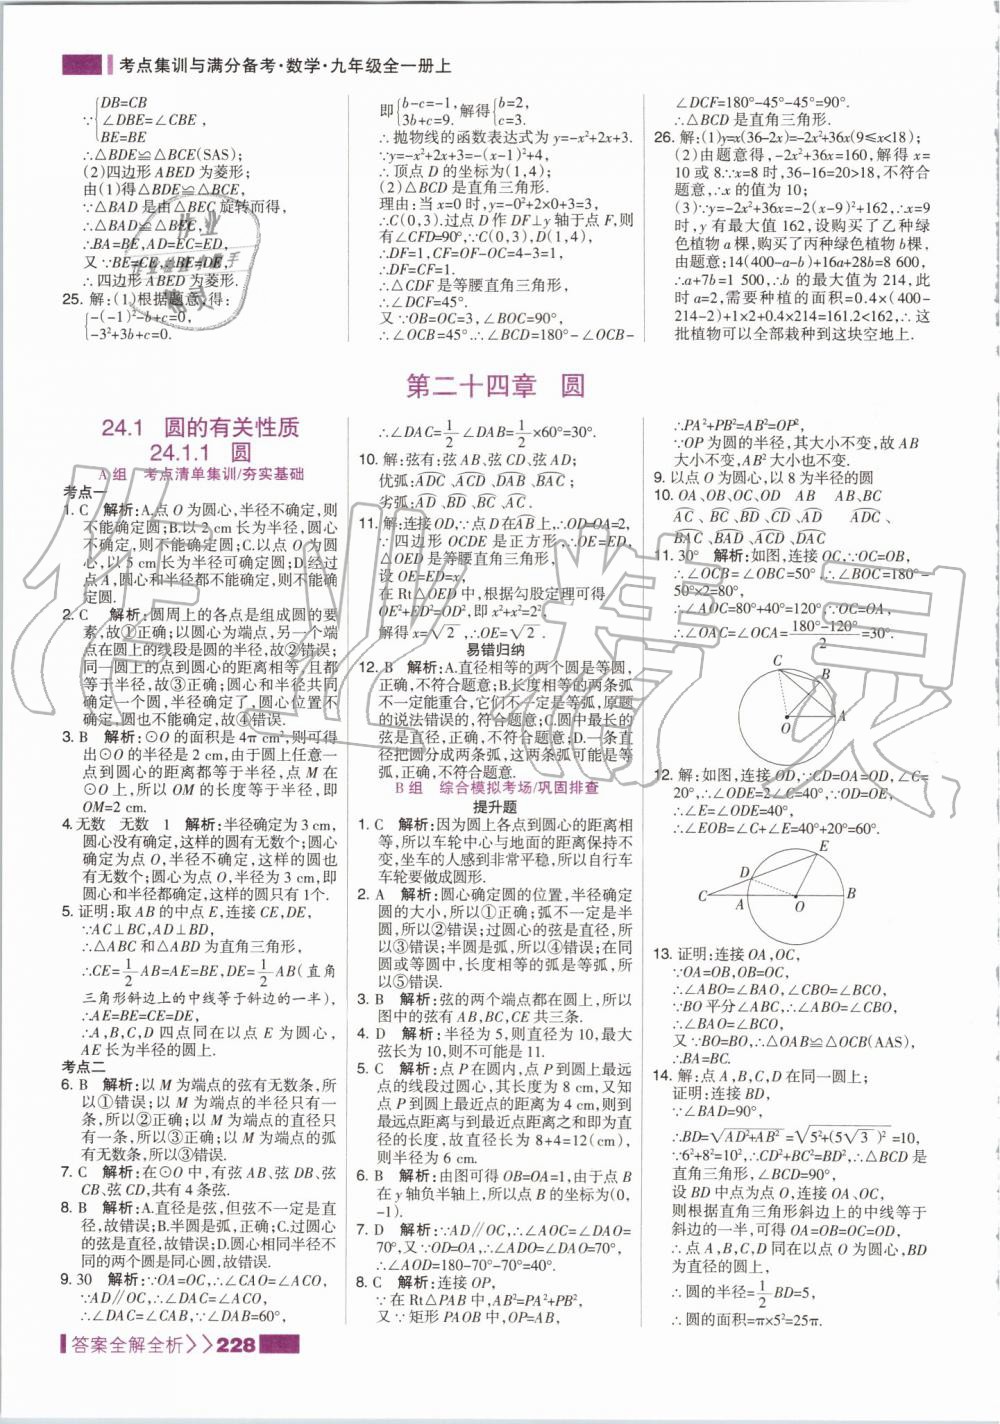 考点集训与满分备考·数学·九年级全一册上
∵{DB=CB
∠DBE=∠CBE,
BE=BE
∴△BDE≌△BCE(SAS);
(2)四边形 ABED 为菱形;
由(1)得△BDE≌△BCE,
∵△BAD 是由△BEC 旋转而得,
∴△BAD≌△BEC,
∴BA=BE,AD=EC=ED,
又∵BE=CE,∴BE=DE,
∴四边形 ABED 为菱形.
25. 解:(1)根据题意,得:
{-(-1)²-b+c=0,
-3²+3b+c=0.
即{b-c=-1,
3b+c=9. 解得{b=2,
c=3.
∴抛物线的函数表达式为 y=-x²+2x+3.
∵y=-x²+2x+3=-(x-1)²+4,
∴顶点 D 的坐标为(1,4);
(2)△BCD 是直角三角形.
理由:当 x=0 时,y=-0²+2×0+3=3,
∴C(0,3).过点 D 作 DF⊥y 轴于点 F,则
有∠CFD=90°,∵C(0,3),D(1,4),
∴DF=1,CF=OF-OC=4-3=1,
∴DF=CF=1.
∴△CDF 是等腰直角三角形,
∴∠DCF=45°.
又∵OB=OC=3,∠BOC=90°,
∴∠OCB=45°.∴∠BCD=180°-∠OCB-
∠DCF=180°-45°-45°=90°.
∴△BCD 是直角三角形.
26. 解:(1)y=x(36-2x)=-2x²+36x(9≤x<18);
(2)由题意得,-2x²+36x=160,解得 x=
10 或 8.∵x=8 时,36-16=20>18,不符合
题意,∴x 的值为 10;
(3)∵y=-2x²+36x=-2(x-9)²+162,∴x=9
时,y 有最大值 162,设购买了乙种绿
色植物 a 棵,购买了丙种绿色植物 b 棵,
由题意:14(400-a-b)+16a+28b=8 600,
∴a+7b=1 500,∴b 的最大值为 214,此
时 a=2,需要种植的面积=0.4×(400-
214-2)+1×2+0.4×214=161.2<162,∴这
批植物可以全部栽种到这块空地上.
第二十四章 圆
24.1 圆的有关性质
24.1.1 圆
A 组 考点清单集训/夯实基础
考点一
1. C 解析:A.点 O 为圆心,半径不确定,则
不能确定圆;B.以 2 cm 长为半径,圆心
不确定,则不能确定圆;C.以点 O 为圆
心,以 5 cm 长为半径可确定圆;D.经过
点 A,圆心和半径都不能确定,则不能确
定圆.
2. C 解析:圆周上的各点是组成圆的要
素,故①正确;以圆心为端点,另一个端
点在圆上的线段是圆的半径,故②错误;
同一圆上的点到圆心的距离相等,且都
等于半径,故③正确;圆心和半径共同
确定一个圆,半径确定了,圆心位置不
确定,圆也不能确定,故④错误.
3. B 解析:∵⊙O 的面积是 4π cm²,则可得
出⊙O 的半径是 2 cm,由于圆上任意一
点到圆心的距离都等于半径,点 M 在
⊙O 上,所以 OM 的长度等于半径,即
OM=2 cm.
4. 无数 无数 1 解析:半径确定为 3 cm,
圆心没有确定,这样的圆有无数个;圆
心确定为点 O,半径不确定,这样的圆也
有无数个;圆心为点 O,半径为 3 cm,即
圆心和半径都确定,这样的圆只有1个.
5. 证明:取 AB 的中点 E,连接 CE,DE,
∵AC⊥BC,AD⊥BD,
∴△ABC 和△ABD 为直角三角形,
∴CE=1/2 AB=AE=BE,DE=1/2 AB(直角
三角形斜边上的中线等于斜边的一半),
∴AE=BE=CE=DE,
∴A,B,C,D 四点同在以点 E 为圆心,
AE 长为半径的圆上.
考点二
6. B 解析:以 M 为端点的弦有无数条,所
以①错误;以 M 为端点的半径只有一
条,所以②正确;以 M 为端点的直径只
有一条,所以③正确;以 M 为端点的弧
有无数条,所以④错误.
7. C 解析:在⊙O 中,有弦 AB、弦 DB、弦
CB、弦 CD,共有 4 条弦.
8. B 解析:A.直径是弦,但弦不一定是直
径,故错误;B.半圆是弧,正确;C.过圆心
的弦是直径,故错误;D.圆心相同半径不
同的两个圆是同心圆,故错误.
9. 30 解析:∵OA=OC,∴∠CAO=∠ACO,
∵AD∥OC,∴∠DAC=∠ACO,
∴∠DAC=∠CAB,∵∠DAB=60°,
∴∠DAC=1/2∠DAB=1/2×60°=30°.
10. 解:弦有:弦 AB、弦 CD、弦 AD;
优弧:ADC、DAB、BAC;
劣弧:AD、BD、BC、AC.
11. 解:连接 OD,∵点 D 在AB上,∴OD=OA=2,
∵四边形 OCDE 是正方形,∴OE=ED,
△OED 是等腰直角三角形,
设 OE=ED=x,
在 Rt△OED 中,根据勾股定理可得
OE²+ED²=OD²,即 x²+x²=2²,
解得 x=√2,∴OE=√2.
易错归纳
12. B 解析:A.直径相等的两个圆是等圆,
正确,不符合题意;B.长度相等的两条弧
不一定能重合,它们不一定是等弧,原题
的说法错误的,符合题意;C.圆中最长的
弦是直径,正确,不符合题意;D.一条直
径把圆分成两条弧,这两条弧可能是等
弧,正确,不符合题意.
B 组 综合模拟考场/巩固排查
提升题
1. C 解析:因为圆上各点到圆心的距离相
等,所以车轮中心与地面的距离保持不
变,坐车的人感到非常平稳,所以自行车
车轮要做成圆形.
2. A 解析:圆心确定圆的位置,半径确定
圆的大小,所以①正确;弧不一定是半
圆,所以②错误;过圆心的弦是直径,所
以③错误;半圆是弧,所以④错误;在同
圆或等圆中,长度相等的弧是等弧,所
以⑤错误.
3. B 解析:弦的两个端点都在圆上,所以
图中的弦有 AB,BC,CE 共三条.
4. D 解析:半径为 5,则直径为 10,最大
弦长为 10,则不可能是 11.
5. C 解析:点 P 在圆内,点 P 到圆上最远
点的线段过圆心,其长度为 8 cm,又知
点 P 到圆上最近点的距离为 4 cm,则到
最远点距离与到最近点距离之和即为直
径的长度,故直径长为 8+4=12(cm),
则半径为 6 cm.
6. B 解析:由图可得 OB=OA=1,由于点 B
在 y 轴负半轴上,所以点 B 的坐标为(0,
-1).
7. D 解析:∵AD∥OC,∴∠AOC=∠DAO=
70°,又∵OD=OA,∴∠ADO=∠DAO=70°,
∴∠AOD=180-70°-70°=40°.
8. C 解析:连接 OP,
∵在 Rt△PAB 中,AB²=PA²+PB²,
又∵矩形 PAOB 中,OP=AB,
∴PA²+PB²=AB²=OP²,
∵OP 为圆的半径,其大小不变,故 AB
大小不变,AB² 大小不变.
9. 以点 O 为圆心,以 8 为半径的圆
10. OA、OB、OC、OD AB AB、BC
AC、BC、BD、CD、AD ADC、
BAC、BAD、ACD、DAC
11. 30° 解析:如图,连接 OC,∵OC=OB,
∴∠OCB=∠OBC=50°.∴∠BOC=180°-
50°×2=80°,
∴∠AOC=80°+40°=120°,
∴∠OAC=∠OCA=180°-120°/2=30°.
C
B
O
A
12. 解:如图,连接 OD,∵CD=OA=OD,
∴∠ODE=2∠C=40°,∵OD=OE,
∴∠E=∠ODE=40°,
∴∠EOB=∠C+∠E=40°+20°=60°.
E
D
C
A
O
B
13. 证明:连接 OA,OC,
∵OA=OB,OB=OC,
∴∠ABO=∠BAO,∠CBO=∠BCO,
∵BO 平分∠ABC,∴∠ABO=∠CBO,
∴∠BAO=∠BCO,
又∵BO=BO,∴△OAB≌△OCB(AAS),
∴BA=BC.
14. 解:点 A,B,C,D 在同一圆上;
证明:连接 BD,
∵∠BAD=90°,
∴BD=√AD²+AB²=√5²+(5√3)²=10,
∵6²+8²=10²,∴CD²+BC²=BD²,∴△BCD 是
直角三角形,∠BCD=90°.
设 BD 中点为点 O,连接 OA,OC,
则根据直角三角形斜边上的中线等于
斜边的一半,可得 OA=OB=OC=OD,
∴点 A,B,C,D 同在以点 O 为圆心,BD
为直径的圆上,
∴圆的半径=1/2 BD=5,
∴圆的面积=π×5²=25π.
答案全解全析>>228
作业精灵